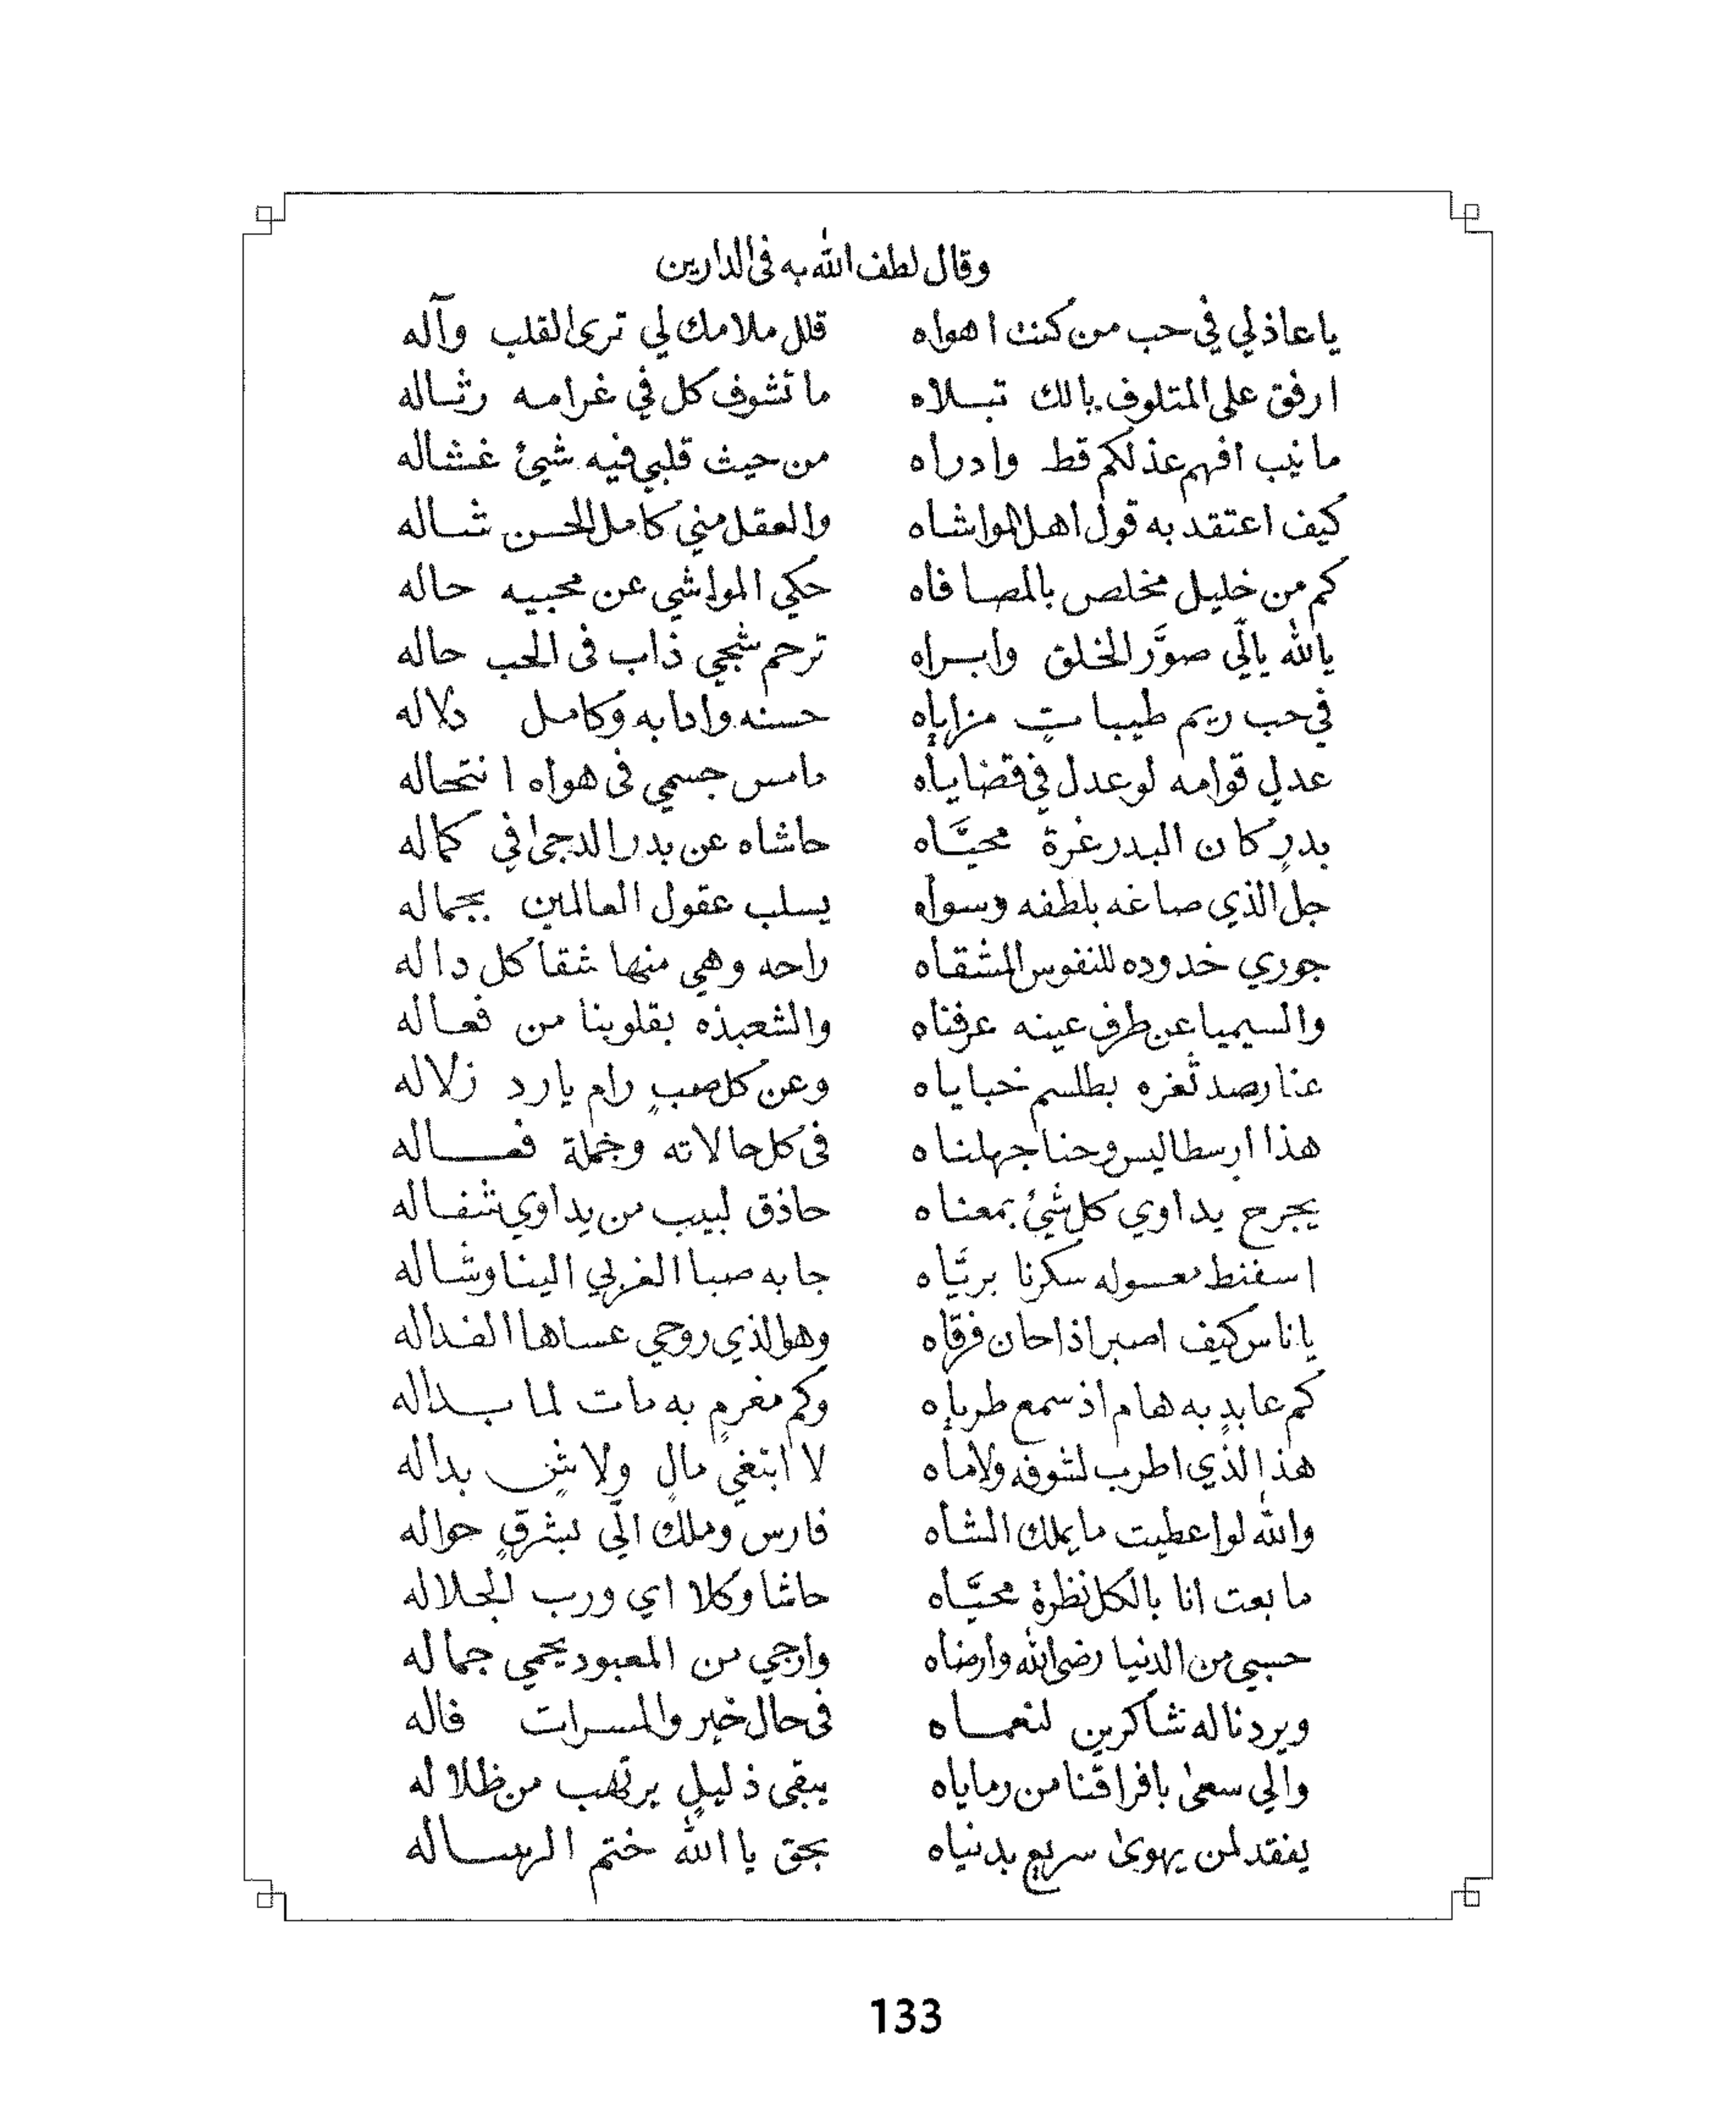 وقال لطف الله به فى الدارين
ياعاذلي في حب من كنت اهواه قلل ملامك لي ترى القلب وآله
ارفق على المتلوف بالك تبلاه ما تشوف كل في غرامه رثاله
مانيب افهم عذلكم قط وادراه من حيث قلبي فيه شيئ غشاله
كيف اعتقد به قول اهل المواشاه والعقل مني كامل الحسن شاله
كم من خليل مخلص بالمصافاه حكي المواشي عن محبيه حاله
يالله يالّي صوَّر الخلق وابراه ترحم شجي ذاب فى الحب حاله
في حب ريم طيباتٍ مزاياه حسنه وادابه وكامل دلاله
عدلٍ قوامه لو عدل في قضاياه مامس جسمي فى هواه انتحاله
بدرٍ كان البدر غرة محيَّاه حاشاه عن بدر الدجى في كماله
جل الذي صاغه بلطفه وسواه يسلب عقول العالمين بجماله
جوري خدوده للنفوس المشقاه راحه وهي منها شقا كل داله
والسيميا عن طرف عينه عرفناه والشعبذه بقلوبنا من فعاله
عنا رصد ثغره بطلسم خباياه وعن كل صبٍ رام يارد زلاله
هذا ارسطاليس وحنا جهلناه فى كل حالاته وجملة فعاله
يجرح يداوي كل شيئ بمعناه حاذق لبيب من يداوي شفاله
اسفنط معسوله سكرنا بريَّاه جابه صبا الغربي الينا وشاله
ياناس كيف اصبر اذا حان فرقاه وهو الذي روحي عساها الفداله
كم عابدٍ به هام اذ سمع طرياه وكم مغرمٍ به مات لما بداله
هذا الذي اطرب لشوفه ولاماه لا ابتغي مالٍ ولا شٍ بداله
والله لو اعطيت ما يملك الشاه فارس وملك الّي بشرقٍ حواله
ما بعت انا بالكل نظرة محيَّاه حاشا وكلا اي ورب الجلاله
حسبي من الدنيا رضى الله وارضاه وارجي من المعبود يحمي جماله
ويردنا له شاكرين لنعماه فى حال خير والمسرات فاله
والي سعى بافراقنا من رماياه يبقى ذليلٍ يرتهب من ظلاله
يفقد لمن يهوى سريع بدنياه بحق يا الله ختم الرساله
133